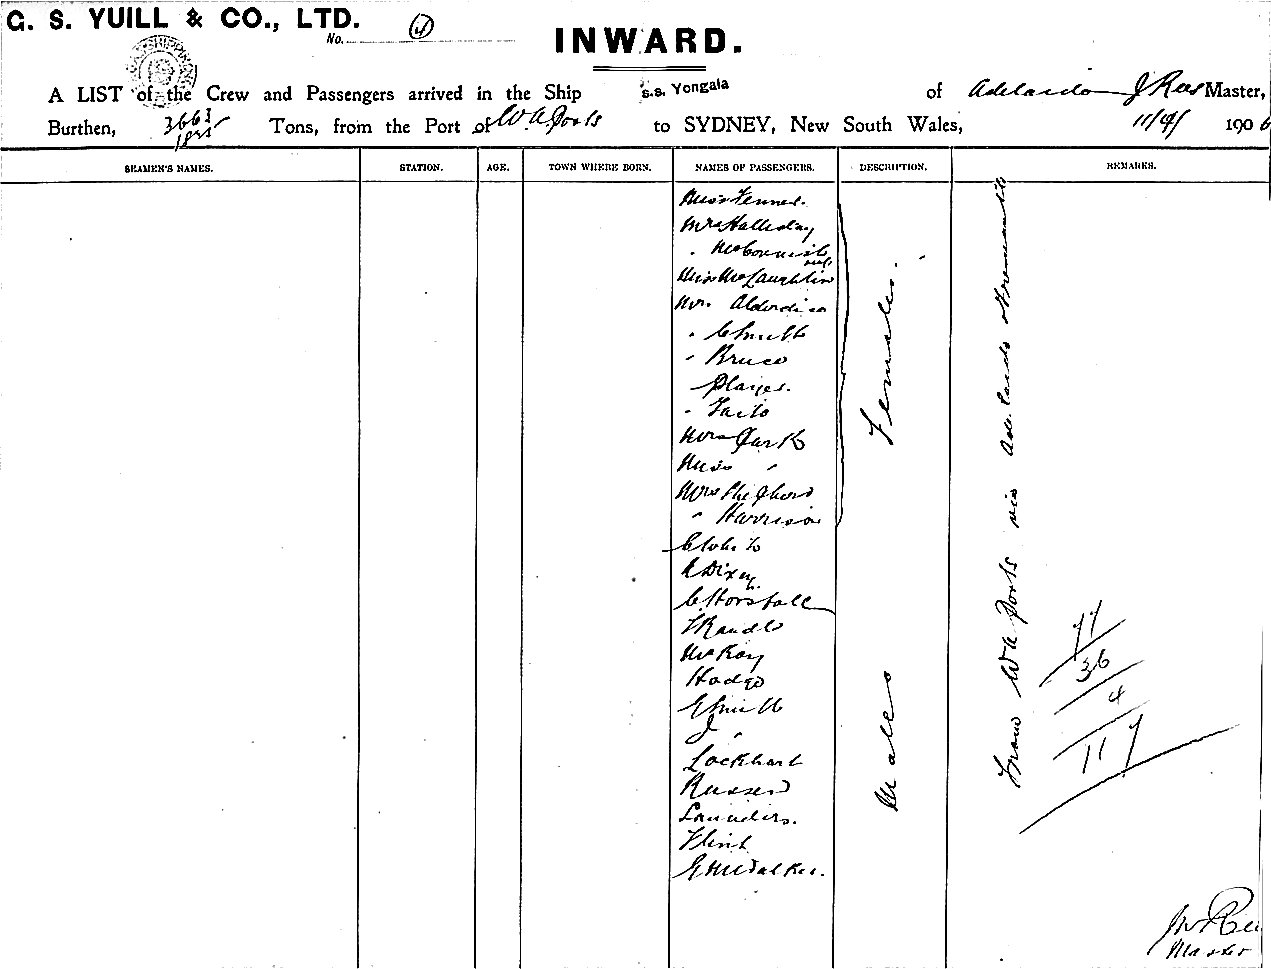 G. S. YUILL & CO., LTD.
No. 4
INWARD.
A LIST of the Crew and Passengers arrived in the Ship s.s. Yongala of Adelaide J Rees Master,
Burthen, 3663 Tons, from the Port of W A Ports to SYDNEY, New South Wales, 11/9/ 1906
SEAMEN'S NAMES. STATION. AGE. TOWN WHERE BORN. NAMES OF PASSENGERS. DESCRIPTION. REMARKS.
Miss Fennel.
Mrs Halliday
Miss McLaughlin
Mrs. Alderdice
" Smith
" Bruce
Player.
" Taits
Mrs Park
Miss "
Mrs Shepherd
" Harrison
Females.
C Dixey
C Horsfall
T Randle
McKay
Hodge
G Smith
J "
Lockhart
Russell
Saunders.
Flint
G M Walker.
Males
From W A Ports via Adelaide & Fremantle
77
36
4
117
J Rees
Master